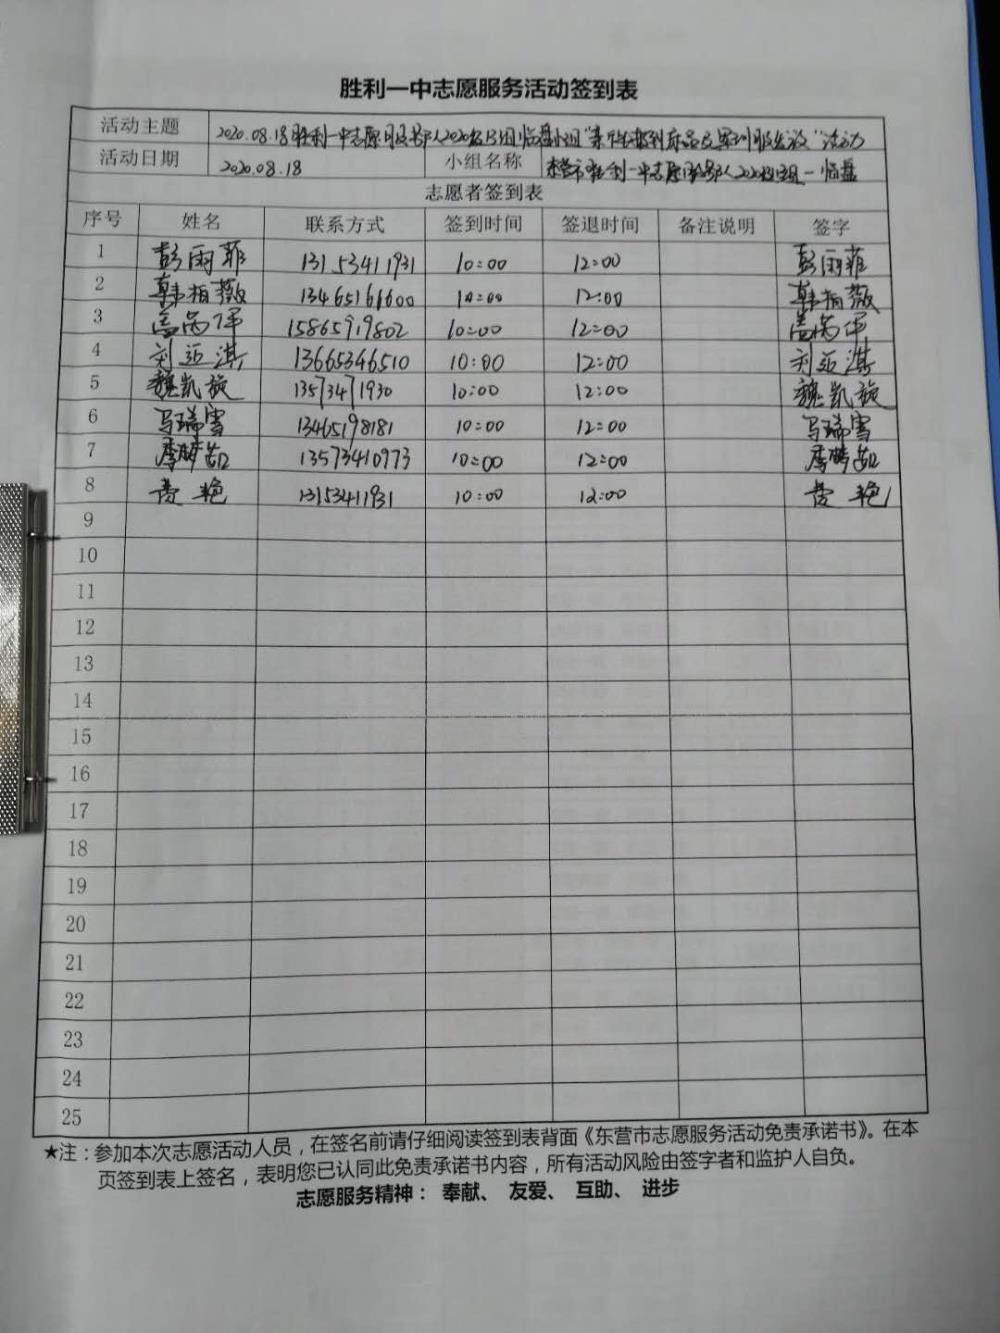 胜利一中志愿服务活动签到表
活动主题 2020.08.18胜利一中志愿服务队2020 临盘小组 活动
活动日期 2020.08.18 小组名称 东营市胜利一中志愿服务队2020 一临盘
志愿者签到表
序号 姓名 联系方式 签到时间 签退时间 备注说明 签字
1 彭雨菲 13153411931 10:00 12:00 彭雨菲
2 韩柏薇 13465161600 10:00 12:00 韩柏薇
3 15865919802 10:00 12:00
4 刘亚淇 13665346510 10:00 12:00 刘亚淇
5 魏凯旋 13573471930 10:00 12:00 魏凯旋
6 马瑞雪 13465198181 10:00 12:00 马瑞雪
7 13573410973 10:00 12:00
8 黄艳 13153411931 10:00 12:00 黄艳
9
10
11
12
13
14
15
16
17
18
19
20
21
22
23
24
25
★注：参加本次志愿活动人员，在签名前请仔细阅读签到表背面《东营市志愿服务活动免责承诺书》。在本
页签到表上签名，表明您已认同此免责承诺书内容，所有活动风险由签字者和监护人自负。
志愿服务精神： 奉献、 友爱、 互助、 进步